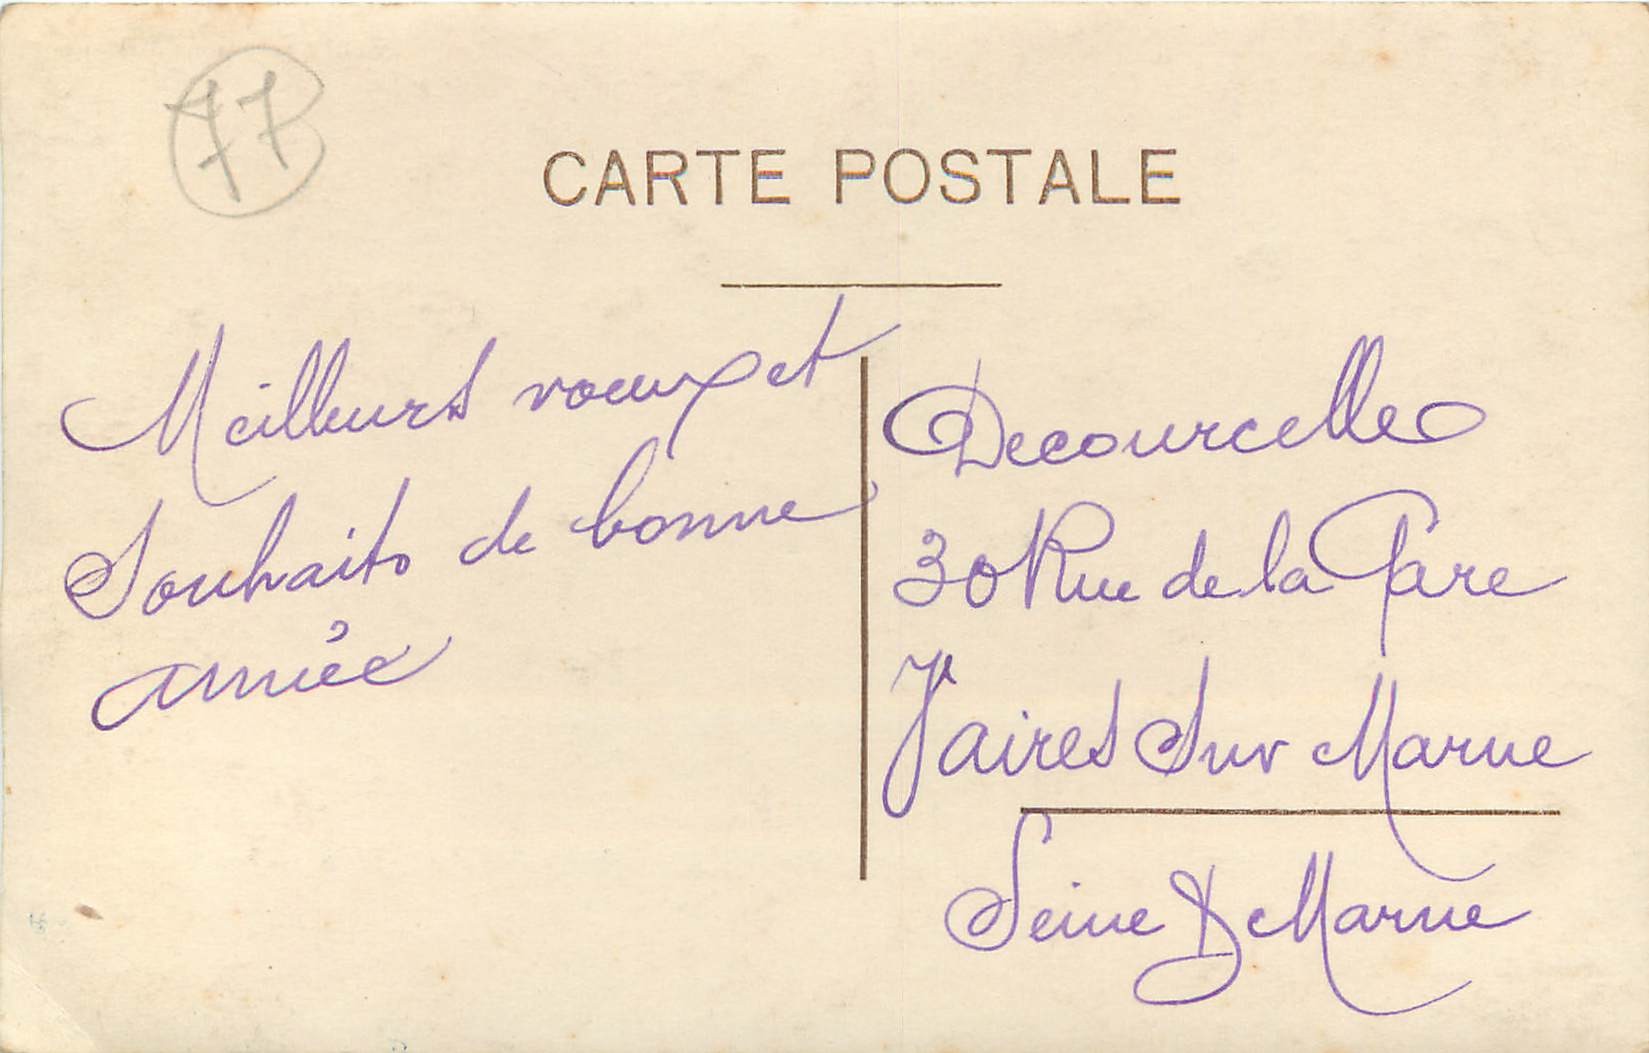 77
CARTE POSTALE
Meilleurs voeux et
Souhaits de bonne
année
Decourcelle
30 Rue de la Gare
Vaires Sur Marne
Seine & Marne